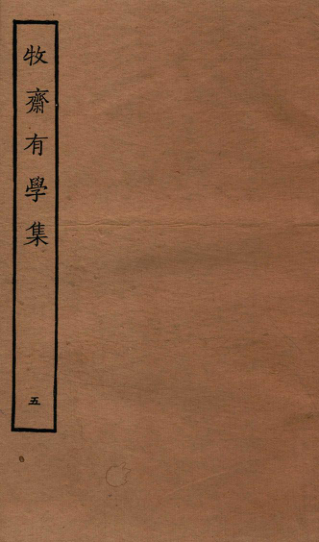 牧齋有學集
五